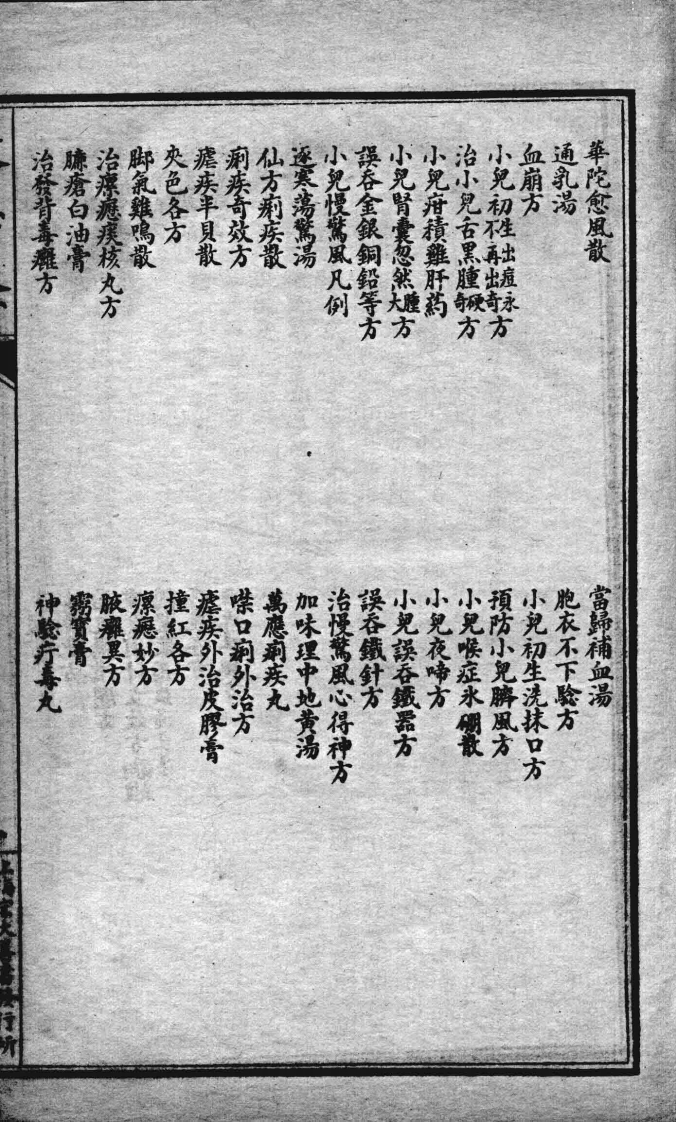 華陀愈風散
當歸補血湯
通乳湯
胞衣不下驗方
血崩方
小兒初生洗抹口方
小兒初生不出痘永再出奇方
預防小兒臍風方
治小兒舌黑腫硬奇方
小兒喉症氷硼散
小兒疳積雞肝葯
小兒夜啼方
小兒腎囊忽然腫大方
小兒誤吞鐵器方
誤吞金銀銅鉛等方
誤吞鐵針方
小兒慢驚風凡例
治慢驚風心得神方
逐寒蕩驚湯
加味理中地黄湯
仙方痢疾散
萬應痢疾丸
痢疾奇效方
噤口痢外治方
瘧疾半貝散
瘧疾外治皮膠膏
夾色各方
撞紅各方
脚氣雞鳴散
瘰癧妙方
治瘰癧痰核丸方
腋癰異方
臁瘡白油膏
治發背毒癰方
神驗疔毒丸